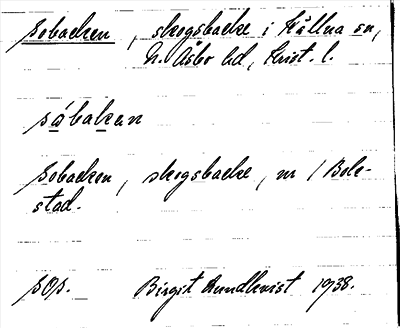 sobacken, skogsbacke i Källna sn,
N. Åsbo hd, Krist. l.
såbakan
sobacken, skogsbacke, nr 1 Bole-
stad.
sOp. Birgit Rundkvist 1938.